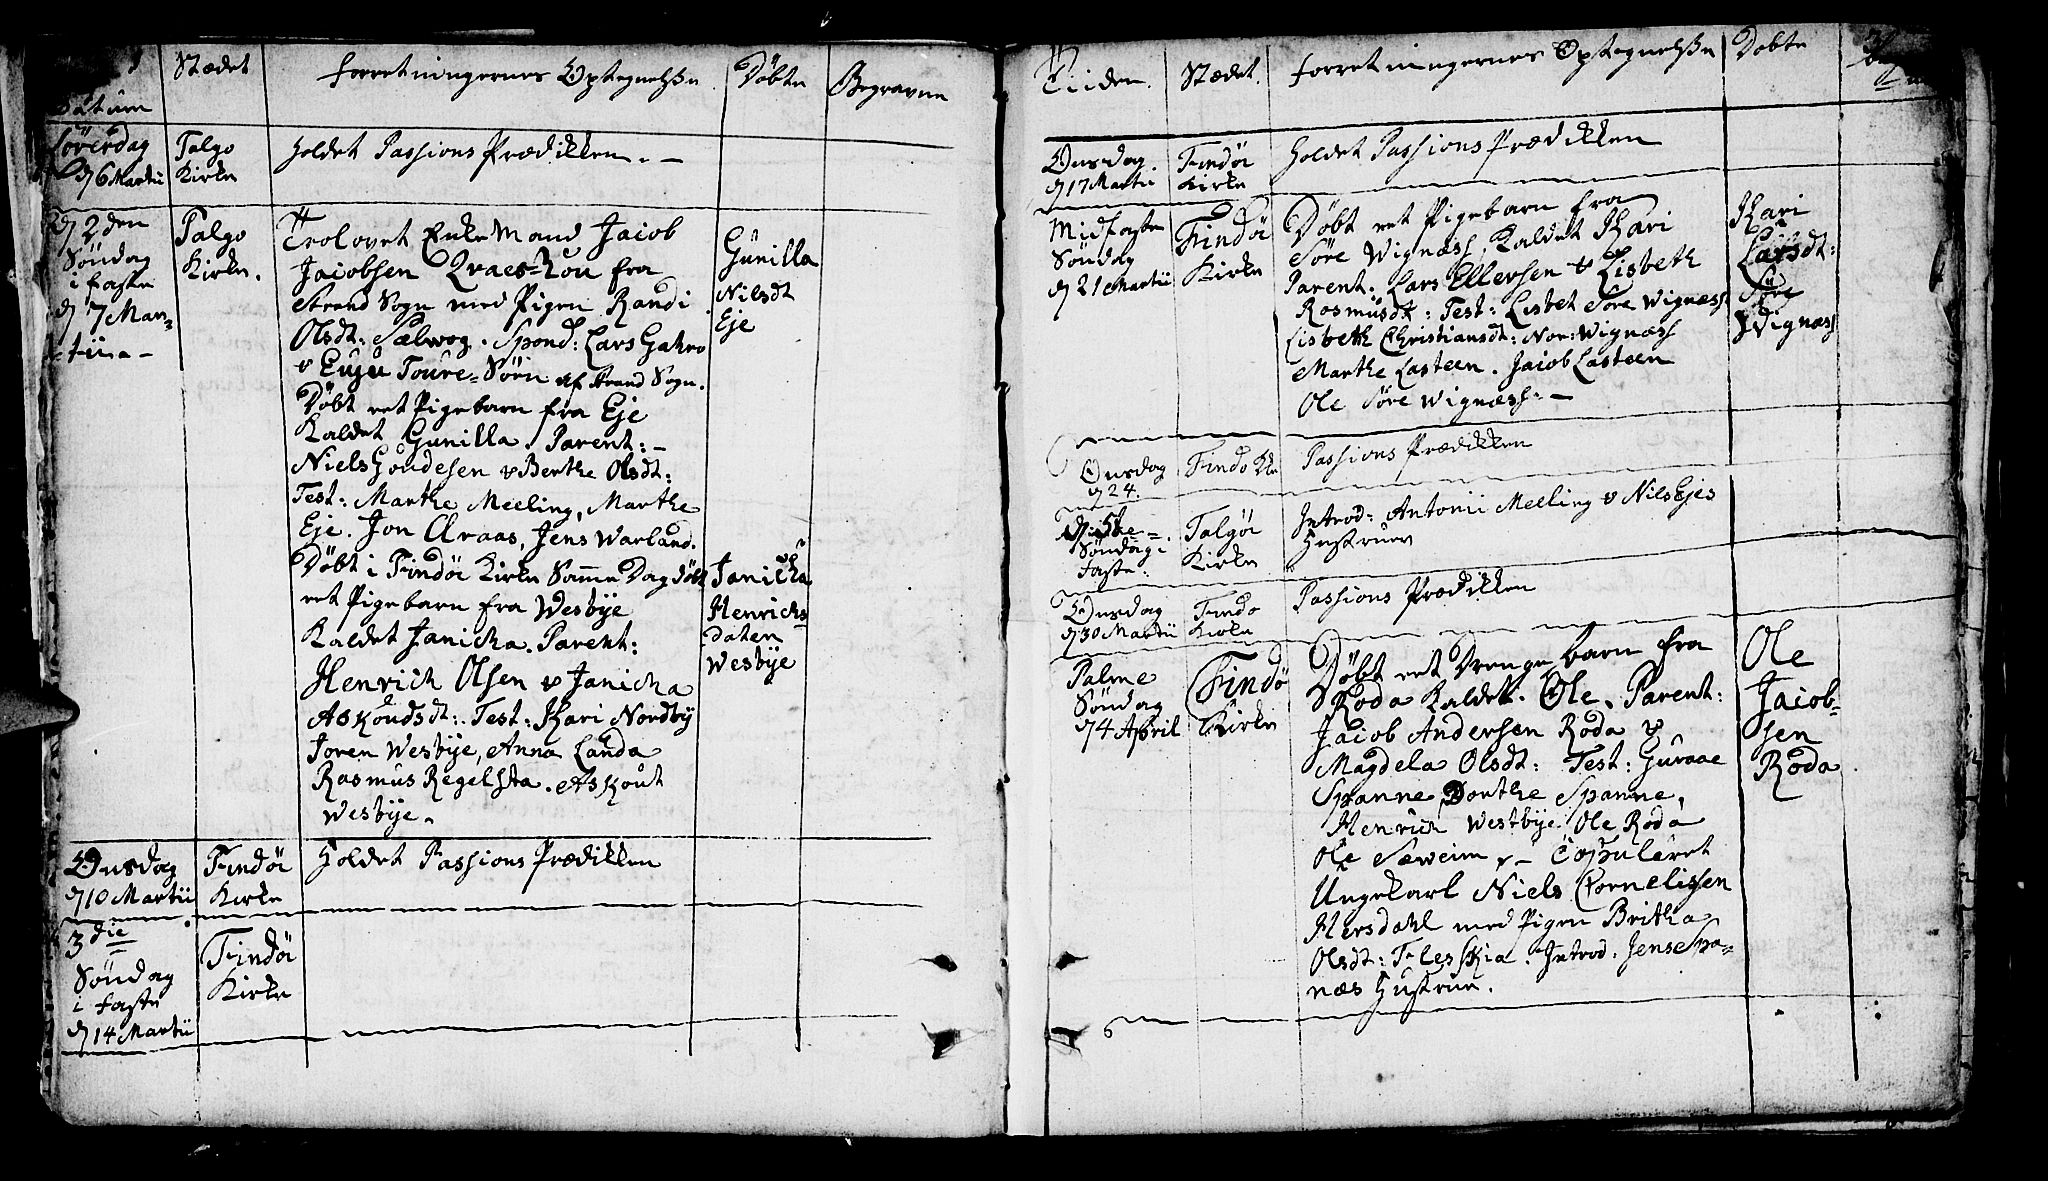 Datum
Stædet
Forretningernes Optegnelsse
Døbte
Begravne
Løverdag
d 6 Martii
Talgo
Kirke
Holdet Passions Prædikken. -
d 2den
Søndag
i faste
d 7 Mar=
tii. -
Talgo
Kirke.
Trolovet Enke Mand Jacob
Jacobsen fra
Strand Sogn med Pigen Randi
Olsdt: Sælwog. Spond: Lars
v Toure=Sørn af Strand Sogn.
Døbt et Pigebarn fra Eje
Kaldet Gunilla. Parent: -
Niels Goudesen v Berthe Olsdt:
Test: Marthe Meeling, Marthe
Eje. Jon Araas, Jens Warland.
Gunilla
Nilsdt
Eje
Døbt i Findöe Kirke Samme Dag døbt
et Pigebarn fra Wesbÿe
Kaldet Janicha. Parent:
Henrich Olsen v Janicha
Askoudsdt:. Test: Kari Nordbÿ
Joren Wesbÿe, Anna Landa
Rasmus Regelsta. Askout
Wesbÿe.
Janicha
Henrichs
daten
Wesbÿe
Onsdag
d 10 Martii
Findöe
Kirke
Holdet Passions Prædikken
3die
Søndag
i faste
d 14 Martii
Findöe
Kirke
Tiiden.
Stædet.
Forretningernes Optegnelsse
Døbte
Onsdag
d 17 Martii
Findöe
Kirke
Holdet Passions Prædikken
Midfaste
Søndag
d 21 Martii
Findöe
Kirke
Døbt et Pigebarn fra
Söre Wignæss, Kaldet Kari
Parent: Lars Ellersen v Lisbeth
Rosmusdt: Test: Lisbet Söre Wignæss
Lisbeth Christiansdt: Nor: Wignæss
Marthe Lasteen. Jacob Lasteen
Ole Söre Wignæss. -
Kari
Larsdt:
Söre
Wignæss
Onsdag
d 24.
Findo Kke
Passions Prædikken
Søndag i
Faste.
Talgöe
Kirke
Introd: Antonii Melling v Nils Ejes
Hustruer
Onsdag
d 30 Martii
Findo
Kirke
Passions Prædikken
Palme
Søndag
d 4 April
Findö
Kirke
Døbt et Drenge barn fra
Roda Kaldet. Ole, Parent:
Jacob Andersen Roda v
Magdela Olsdt: Test: Guraae
Spanne, Dorthe Spanne,
Henrich Westbÿe. Ole Roda
Ole Sæweim v - Copuleret
Ungekarl Niels Cornelissen
Hersdahl med Pigen Britha
Olsdt: Flesskia. Introd. Jens Spa=
næs Hustrue.
Ole
Jacob=
sen
Roda